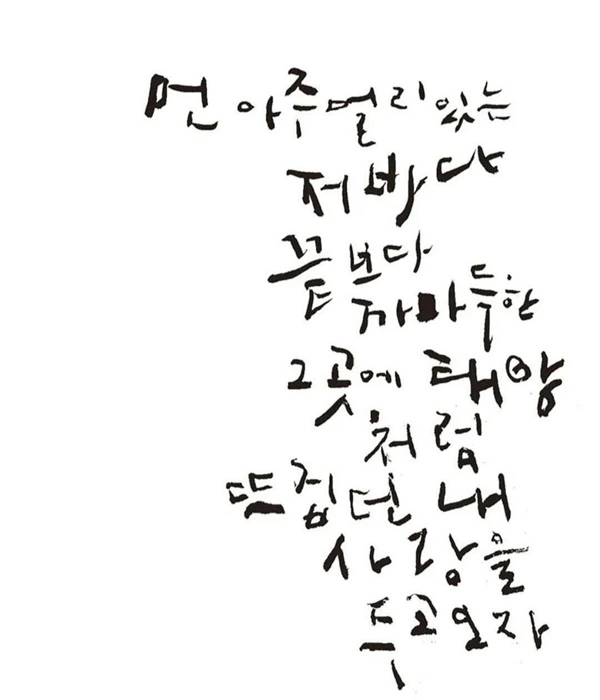 먼 아주 멀리 있는
저 바다
끝보다
까마득한
그곳에 태양
처럼
뜨겁던 내
사랑을
두고 오자